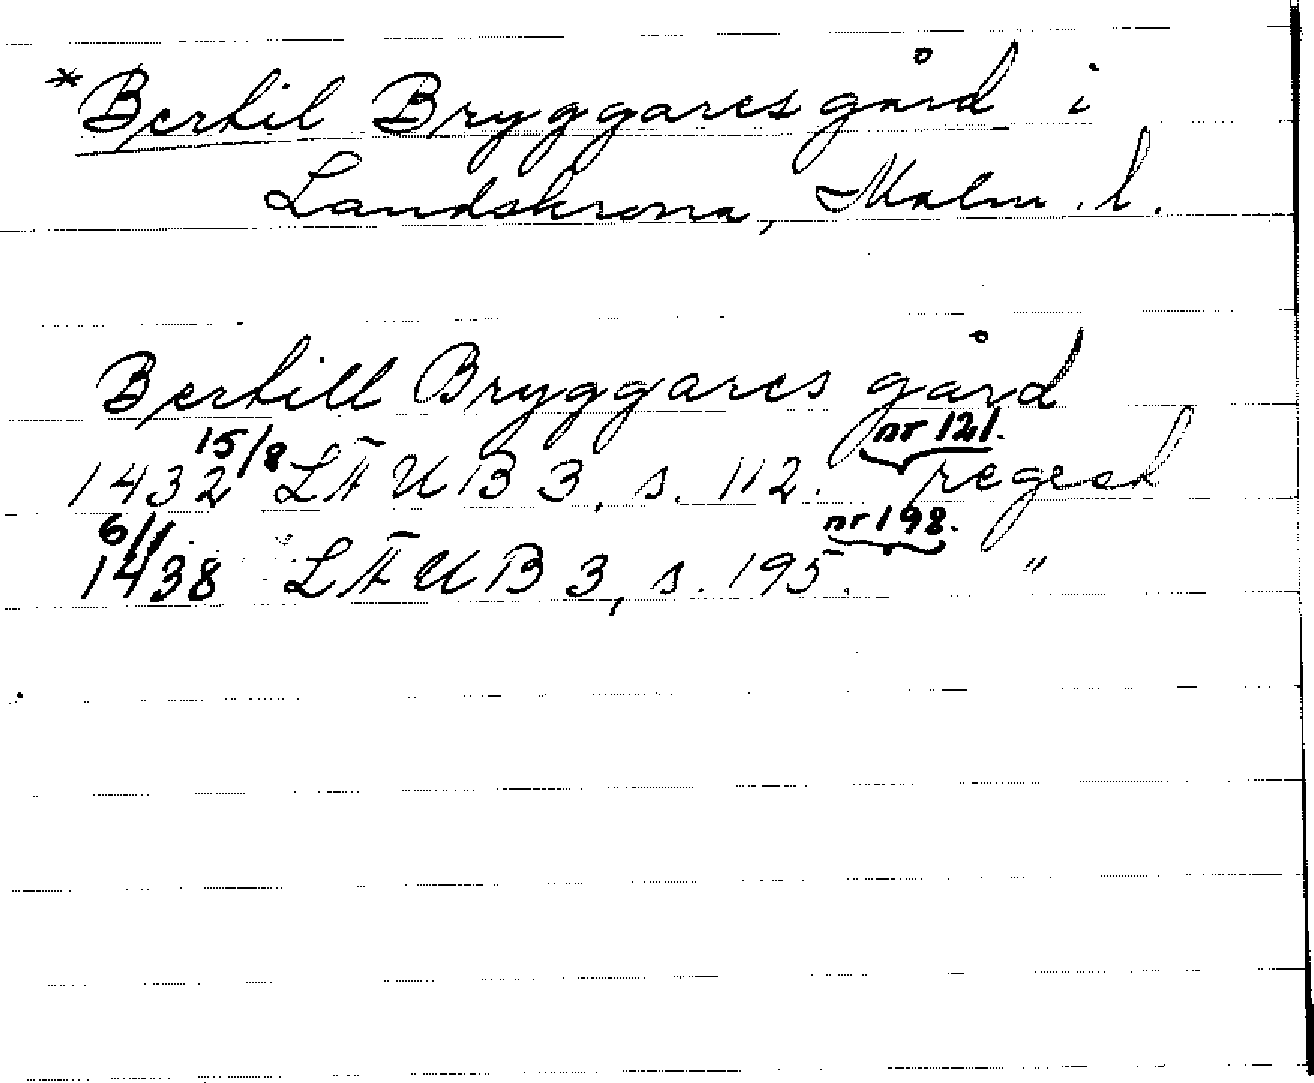 *Bertil Bryggares gård i
Landskrona, Malm. l.
Bertill Bryggares gård
1432 15/8 LÄUB 3, s. 112. nr 121. regest
1438 6/1 " LÄUB 3, s. 195. nr 198. "